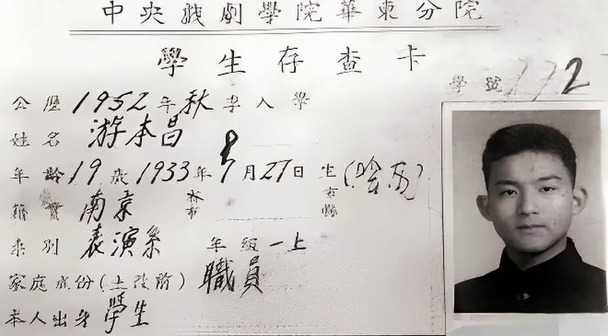 中央戲劇學院華東分院
學生存查卡
學號 2
公曆1952年秋季入學
姓名 游本昌
年齡19歲1933年8月27日生
籍貫 南京 市
系別 表演系 年級 一上
家庭成份(土改前) 職員
本人出身 學生